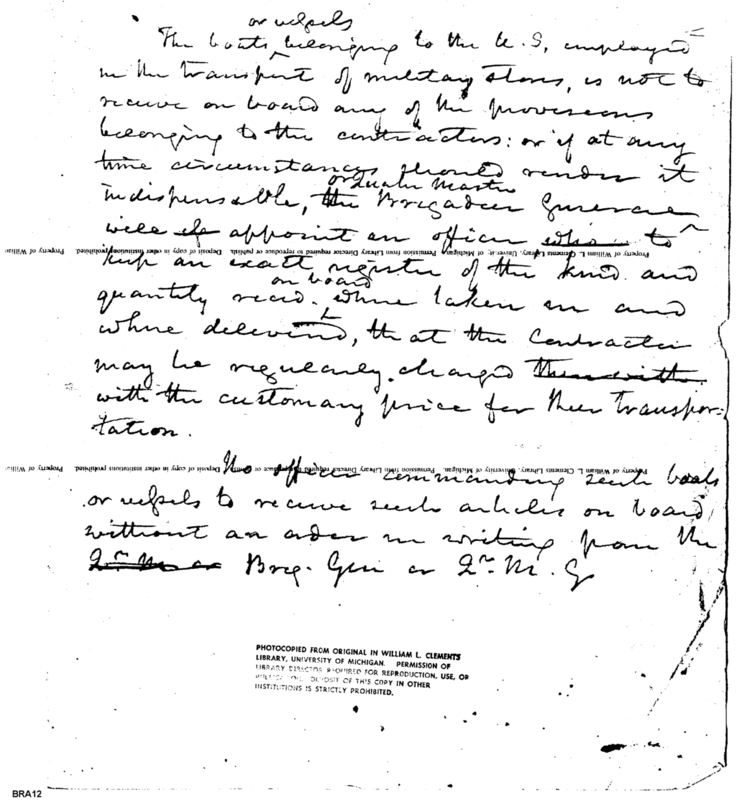 or vessels
The boats belonging to the U. S. employed
in the transport of military stores, is not to
receive on board any of the provisions
belonging to the contractors: or if at any
time circumstances should render it
or Quarter Master
indispensable, the Brigadier General
will appoint an officer who to
Property of William L. Clements Library, University of Michigan. Permission from Library Director required to reproduce or publish. Deposit of copy in other institutions prohibited. Property of William
keep an exact register of the kind and
on board
quantity recd. where taken in and
where delivered, that the Contractor
may be regularly charged therewith
with the customary price for their transpor-
tation.
Property of William L. Clements Library, University of Michigan. Permission from Library Director required to reproduce or publish. Deposit of copy in other institutions prohibited. Property of William
No officer commanding such boats
or vessels to receive such articles on board
without an order in writing from the
Qr. M or Brig. Gen or Qr. M. G
PHOTOCOPIED FROM ORIGINAL IN WILLIAM L. CLEMENTS
LIBRARY, UNIVERSITY OF MICHIGAN. PERMISSION OF
LIBRARY DIRECTOR REQUIRED FOR REPRODUCTION, USE, OR
PUBLICATION. DEPOSIT OF THIS COPY IN OTHER
INSTITUTIONS IS STRICTLY PROHIBITED.
BRA12